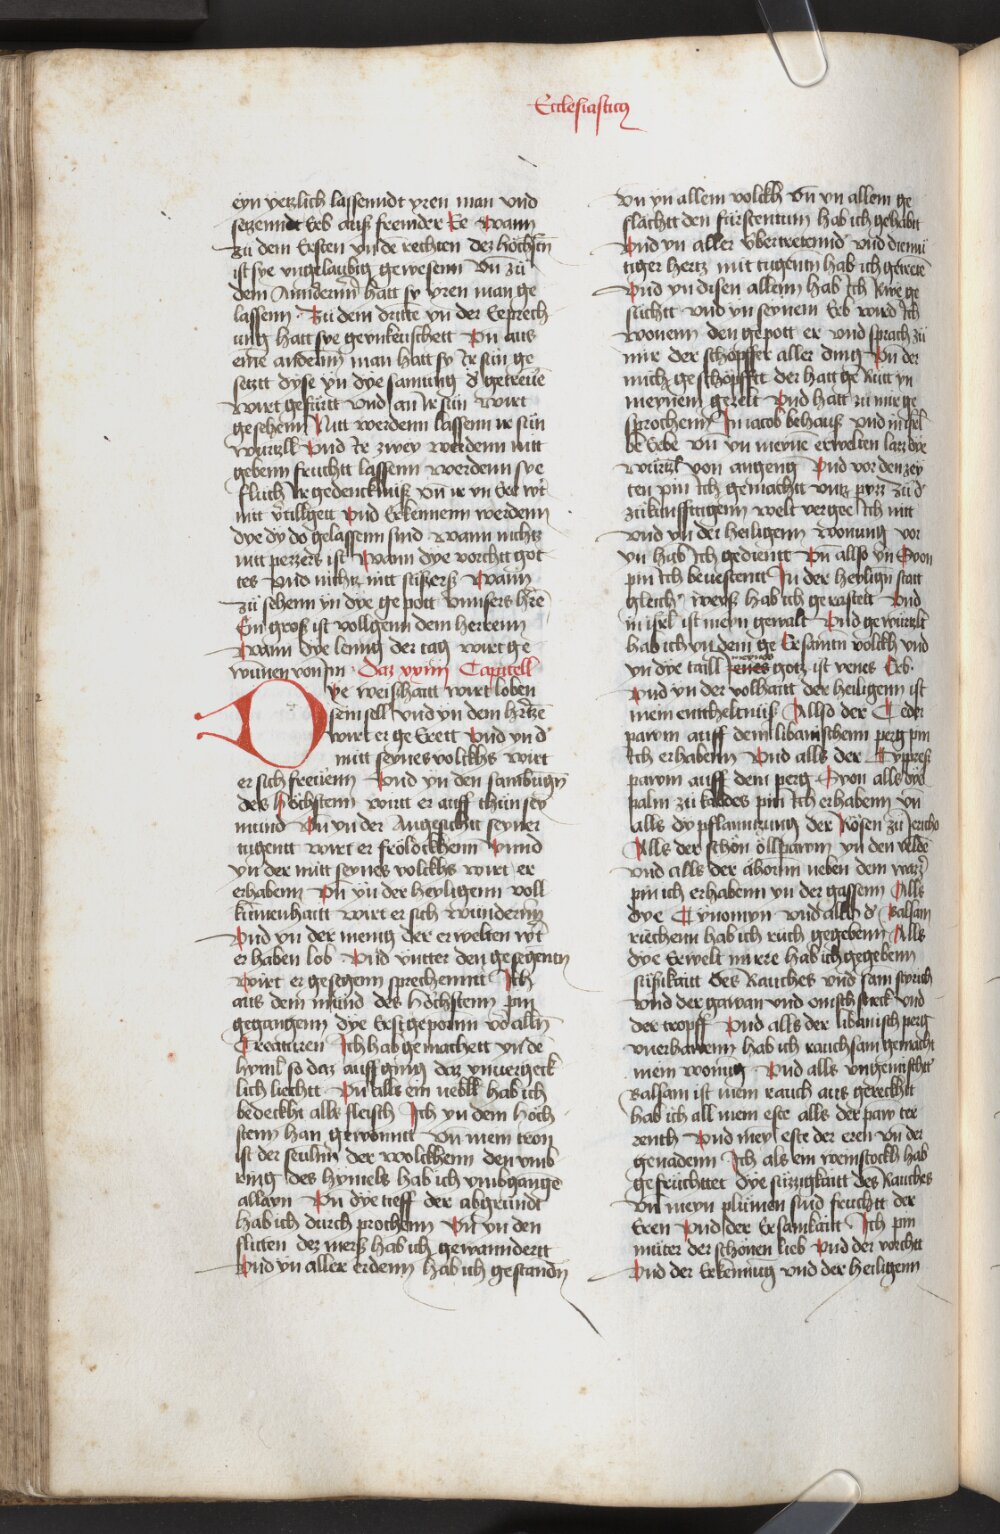 Ecclesiasticꝰ
eyn yetzlich lassenndt yren man vnd
setzenndt Erb auß fremder Ee Wann
zu dem Ersten yn dē rechten der höchstn̄
ist sye vngelaubig gewesenn Vn̄ zü
dem Annderm̄ hatt sy yren man ge
lassenn Zu dem dritte yn der Eeprech
ung hatt sye geunkeuschett Vn̄ aus
eine anderm̄ man hatt sy Ir sün ge
setztt dyse yn dye samung d' getreuē
wirt gefürtt vnd an Ir sün wirt
gesehenn Nitt werdenn lassenn ir sün
wurtzll Vnd Ir zwey werdenn nitt
gebenn feuchtt lassenn werdenn sye
fluch Ir gedencknüß vn̄ ir vn Ere wt̄
nitt v'tillgett Vnd Erkennenn werdenn
dye dy do gelassenn sind wann nichtz
nitt perzers ist Wann dye vorchtt got
tes Vnd nichtz nitt süßerß Wann
zü sehenn yn dye gepott vnnsers hrē
Ein groß ist vollgenn dem herrenn
Wann dye leng der tag wirt ge
nümen von im · Daz xxiiij Capittell
Dye weißhaitt wirt loben
sein sell vnd yn dem hertzē
wirt er ge Erett Vnd yn d'
mitt seynes volckhs wirt
er sich freüenn Vnd yn den sambūgn̄
des Höchstenn wirt er auff thün sey
mund Vn̄ yn der Angesichtt seyner
tugentt wirt er frölöckhenn Vnnd
yn der mitt seynes volckhs wirt er
erhabenn Vn̄ yn der heyligenn voll
kumenhaitt wirt er sich wundernn
Vnd yn der menig der erwelten wt̄
er haben lob Vnd vntter den gesegentn
Wirt er gesegenn sprechenntt Ich
aus dem mund des höchstenn pin
gegangenn dye Erstgeporīn vō alln̄
Creaturen Ich hab gemachett yn dē
hyml so daz auff ging daz vnuergeck
lich liechtt Vn̄ alls ein neblk hab ich
bedeckht alls fleisch Ich yn dem höch
stenn han gewonntt Vn̄ mein tron
ist der seulnn der wolckhenn den vmb
ring des hymels hab ich vmbgangē
allayn Vn̄ dye tieff der abgründt
hab ich durch prochenn Vn̄ yn den
flütten dez merß hab ich gewanndertt
Vnd yn aller erdenn hab ich gestandn̄
Vn yn allem volckh Vn̄ yn allem ge
slächtt den fürstentum hab ich gehabtt
Vnd yn aller übertretennd vnd diemü
tiger hertz mit tugentn̄ hab ich getretē
Vnd yn disen allenn hab Ich Rwe ge
süchtt Vnd yn seynem Erb wird Ich
wonenn den gepott er vnd sprach zü
mir der schöpffer aller ding Vn̄ der
mich geschöpfftt der hatt ge Rütt yn
meynem gezelt Vnd hatt zü mir ge
sprochenn In iacob behauß vnd in isrl̄
be Erbe Vn̄ yn meyne erwelten laz dye
würtzl von angeng Vnd vor den zey
ten pin Ich gemachtt vntz pyzz zu d'
zükünfftigenn welt vergee Ich nitt
Vnd yn der heiligenn wonung vor
yn hab Ich gedientt Vn̄ allso yn Syon
pin Ich beuestentt In der heylign̄ statt
gleich' weyß hab ich gerastett Vnd
in isrl̄ ist meyn gewalt Vnd gewürtzlt
hab ich yn dem ge Ersamtn volckh vnd
yn dye taill meynes gotz ist yenes Erb.
Vnd yn der volhaitt der heiligenn ist
mein enntheltnüß Allso der Ceder
pawm auff dem libanischenn perg pin
Ich erhabenn Vnd alls der Cyppreß
pawm auff dem perg Syon alls dye
palm zü kaddes pin Ich erhabenn vn̄
alls dy pflanntzung der Rosen zü Jericho
Alls der schön öllpawm yn den veldē
Vnd alls der ahorīn neben dem wazz'
pin ich erhabenn yn der gassenn Alls
dye Cynomyn vnd alls d' Balsam
riechenn hab ich ruch gegebenn Alls
dye Erwelt mirre hab ich gegebenn
süßikaitt des Rauches vnd sam styrich
Vnd der gawan vnd onisch streck vnd
der tropff Vnd alls der libanisch perg
vnerhawenn hab ich rauchsam gemacht
mein wonūg Vnd alls vngemischtt'
Balsam ist mein rauch aus gereckhtt
hab ich all mein este alls der paw ter
renth Vnd mey este der eren vn̄ der
genadenn Ich als ein weinstockh hab
gefrüchttet dye süzzigkaitt des Rauches
Vn̄ meyn plümen sind feuchtt der
Eren Vnd der Ersamkaitt Ich pin
müter der schönen lieb Vnd der vorchtt
Vnd der Erkennüg vnd der heiligenn